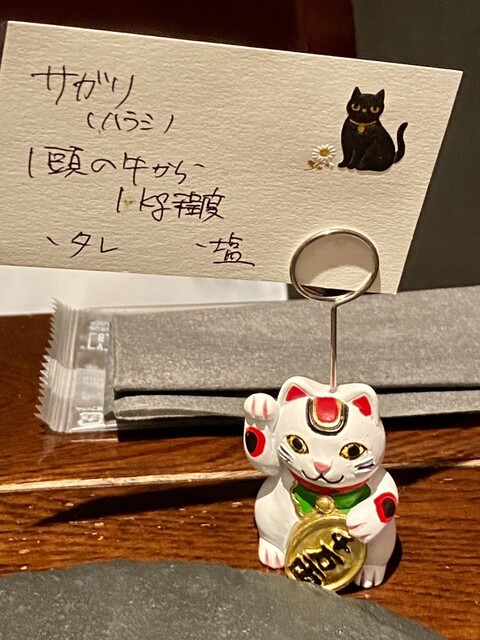 サガリ
(ハラミ)
1頭の牛から
1kg程度
・タレ ・塩